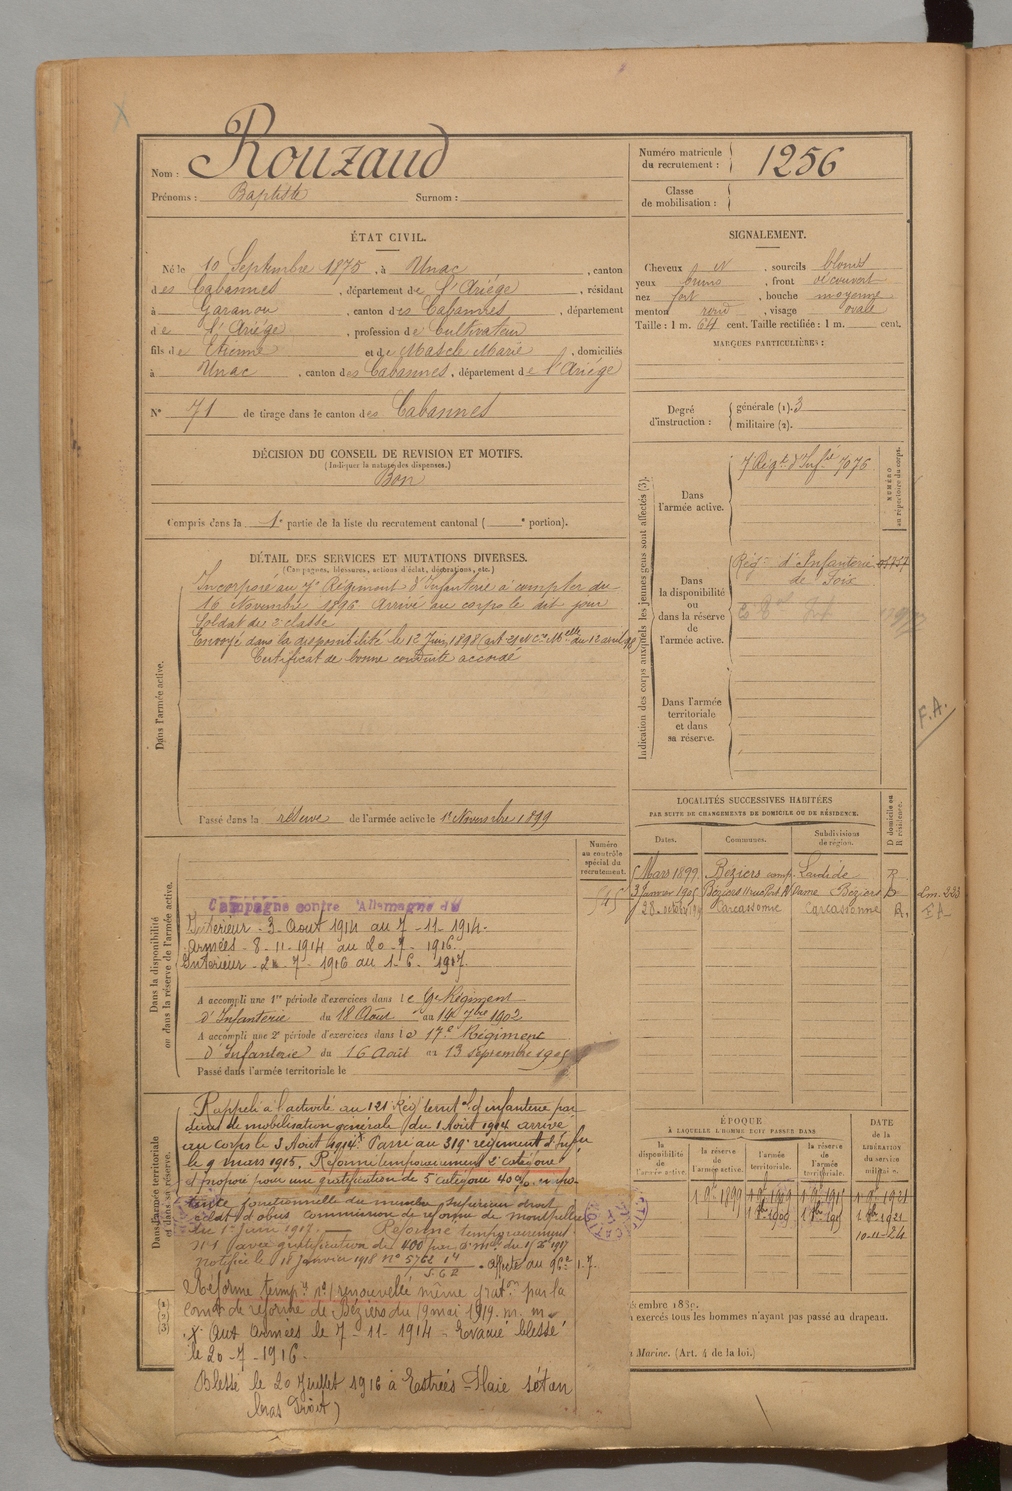 Nom : Rouzaud
Prénoms : Baptiste Surnom :
Numéro matricule
du recrutement : 1256
Classe
de mobilisation :
ÉTAT CIVIL.
Né le 10 Septembre 1875, à Unac, canton
des Cabannes, département de l'Ariége, résidant
à Garanou, canton des Cabannes, département
de l'Ariége, profession de Cultivateur
fils de Etienne et de Mascle Marie, domiciliés
à Unac, canton des Cabannes, département de l'Ariége
N° 71 de tirage dans le canton des Cabannes
SIGNALEMENT.
Cheveux, sourcils blonds
yeux bruns, front découvert
nez fort, bouche moyenne
menton rond, visage ovale
Taille : 1 m. 64 cent. Taille rectifiée : 1 m. cent.
MARQUES PARTICULIÈRES :
Degré
d'instruction :
générale (1). 3
militaire (2).
DÉCISION DU CONSEIL DE REVISION ET MOTIFS.
(Indiquer la nature des dispenses.)
Bon
Compris dans la 1e partie de la liste du recrutement cantonal ( e portion).
DÉTAIL DES SERVICES ET MUTATIONS DIVERSES.
(Campagnes, blessures, actions d'éclat, décorations, etc.)
Dans l'armée active.
Incorporé au 7e Régiment d'Infanterie à compter du
16 Novembre 1896 Arrivé au corps le dit jour
Soldat de 2e classe
Envoyé dans la disponibilité le 12 Juin 1898 (art. 21 N Ce Mlle du 12 avril 98)
Certificat de bonne conduite accordé
Passé dans la réserve de l'armée active le 1er Novembre 1899
Indication des corps auxquels les jeunes gens sont affectés (3).
NUMÉRO
au répertoire du corps.
Dans
l'armée active.
7 Régt d'Infie 7076
Dans
la disponibilité
ou
dans la réserve
de
l'armée active.
Régt d'Infanterie
de Foix
Dans l'armée
territoriale
et dans
sa réserve.
F.A.
LOCALITÉS SUCCESSIVES HABITÉES
PAR SUITE DE CHANGEMENTS DE DOMICILE OU DE RÉSIDENCE.
D domicile ou
R résidence.
Dates. Communes. Subdivisions
de région.
5 Mars 1899 Béziers R
3 Janvier 1905 Béziers Béziers
28 Carcassonne Carcassonne R.
Dans la disponibilité
ou dans la réserve de l'armée active.
Numéro
au contrôle
spécial du
recrutement.
Campagne contre l'Allemagne du
Intérieur - 3 - Aout 1914 au 7 - 11 - 1914.
Armées - 8 - 11 - 1914 au 20 - 7 - 1916.
Intérieur - 21 - 7 - 1916 au 1 - 6 - 1917.
A accompli une 1re période d'exercices dans le 9e Régiment
d'Infanterie du 18 Août au 14 7bre 1902
A accompli une 2e période d'exercices dans le 17e Régiment
d'Infanterie du 16 Août au 13 septembre 1905
Passé dans l'armée territoriale le
Dans l'armée territoriale
et dans sa réserve.
Rappelé à l'activité au 121 Régt territal d'infanterie par
décret de mobilisation générale du 1 Aout 1914 arrivé
au corps le 3 Aout 1914. Passé au 319e régiment d'Infie
le 9 mars 1915. Réformé temporairement 2e catégorie
et proposé pour une gratification de 5e catégorie 40% impo-
tence fonctionnelle du membre supérieur droit
éclat d'obus commission de réforme de Montpellier
du 1er Juin 1917. — Réformé temporairement
n°1 avec gratification de 400 par d. mlle du 1/ Xe 1917
notifiée le 18 janvier 1918 n° 5762
Réforme tempre n°1 renouvelée même gration par la
comon de réforme de Béziers du 19 mai 1919.
x Aux Armées le 7 - 11 - 1914 - Evacué blessé
le 20 - 7 - 1916.
Blessé le 20 Juillet 1916 à Estrées Plaie séton
bras droit)
ÉPOQUE
À LAQUELLE L'HOMME DOIT PASSER DANS
DATE
de la
LIBÉRATION
du service
militaire.
la
disponibilité
de
l'armée active.
la réserve
de
l'armée active.
l'armée
territoriale.
la réserve
de
l'armée
territoriale.
1 9bre 1899
10-11-24
(1)
(2)
(3)
écembre 1889.
n exercés tous les hommes n'ayant pas passé au drapeau.
Marine. (Art. 4 de la loi.)